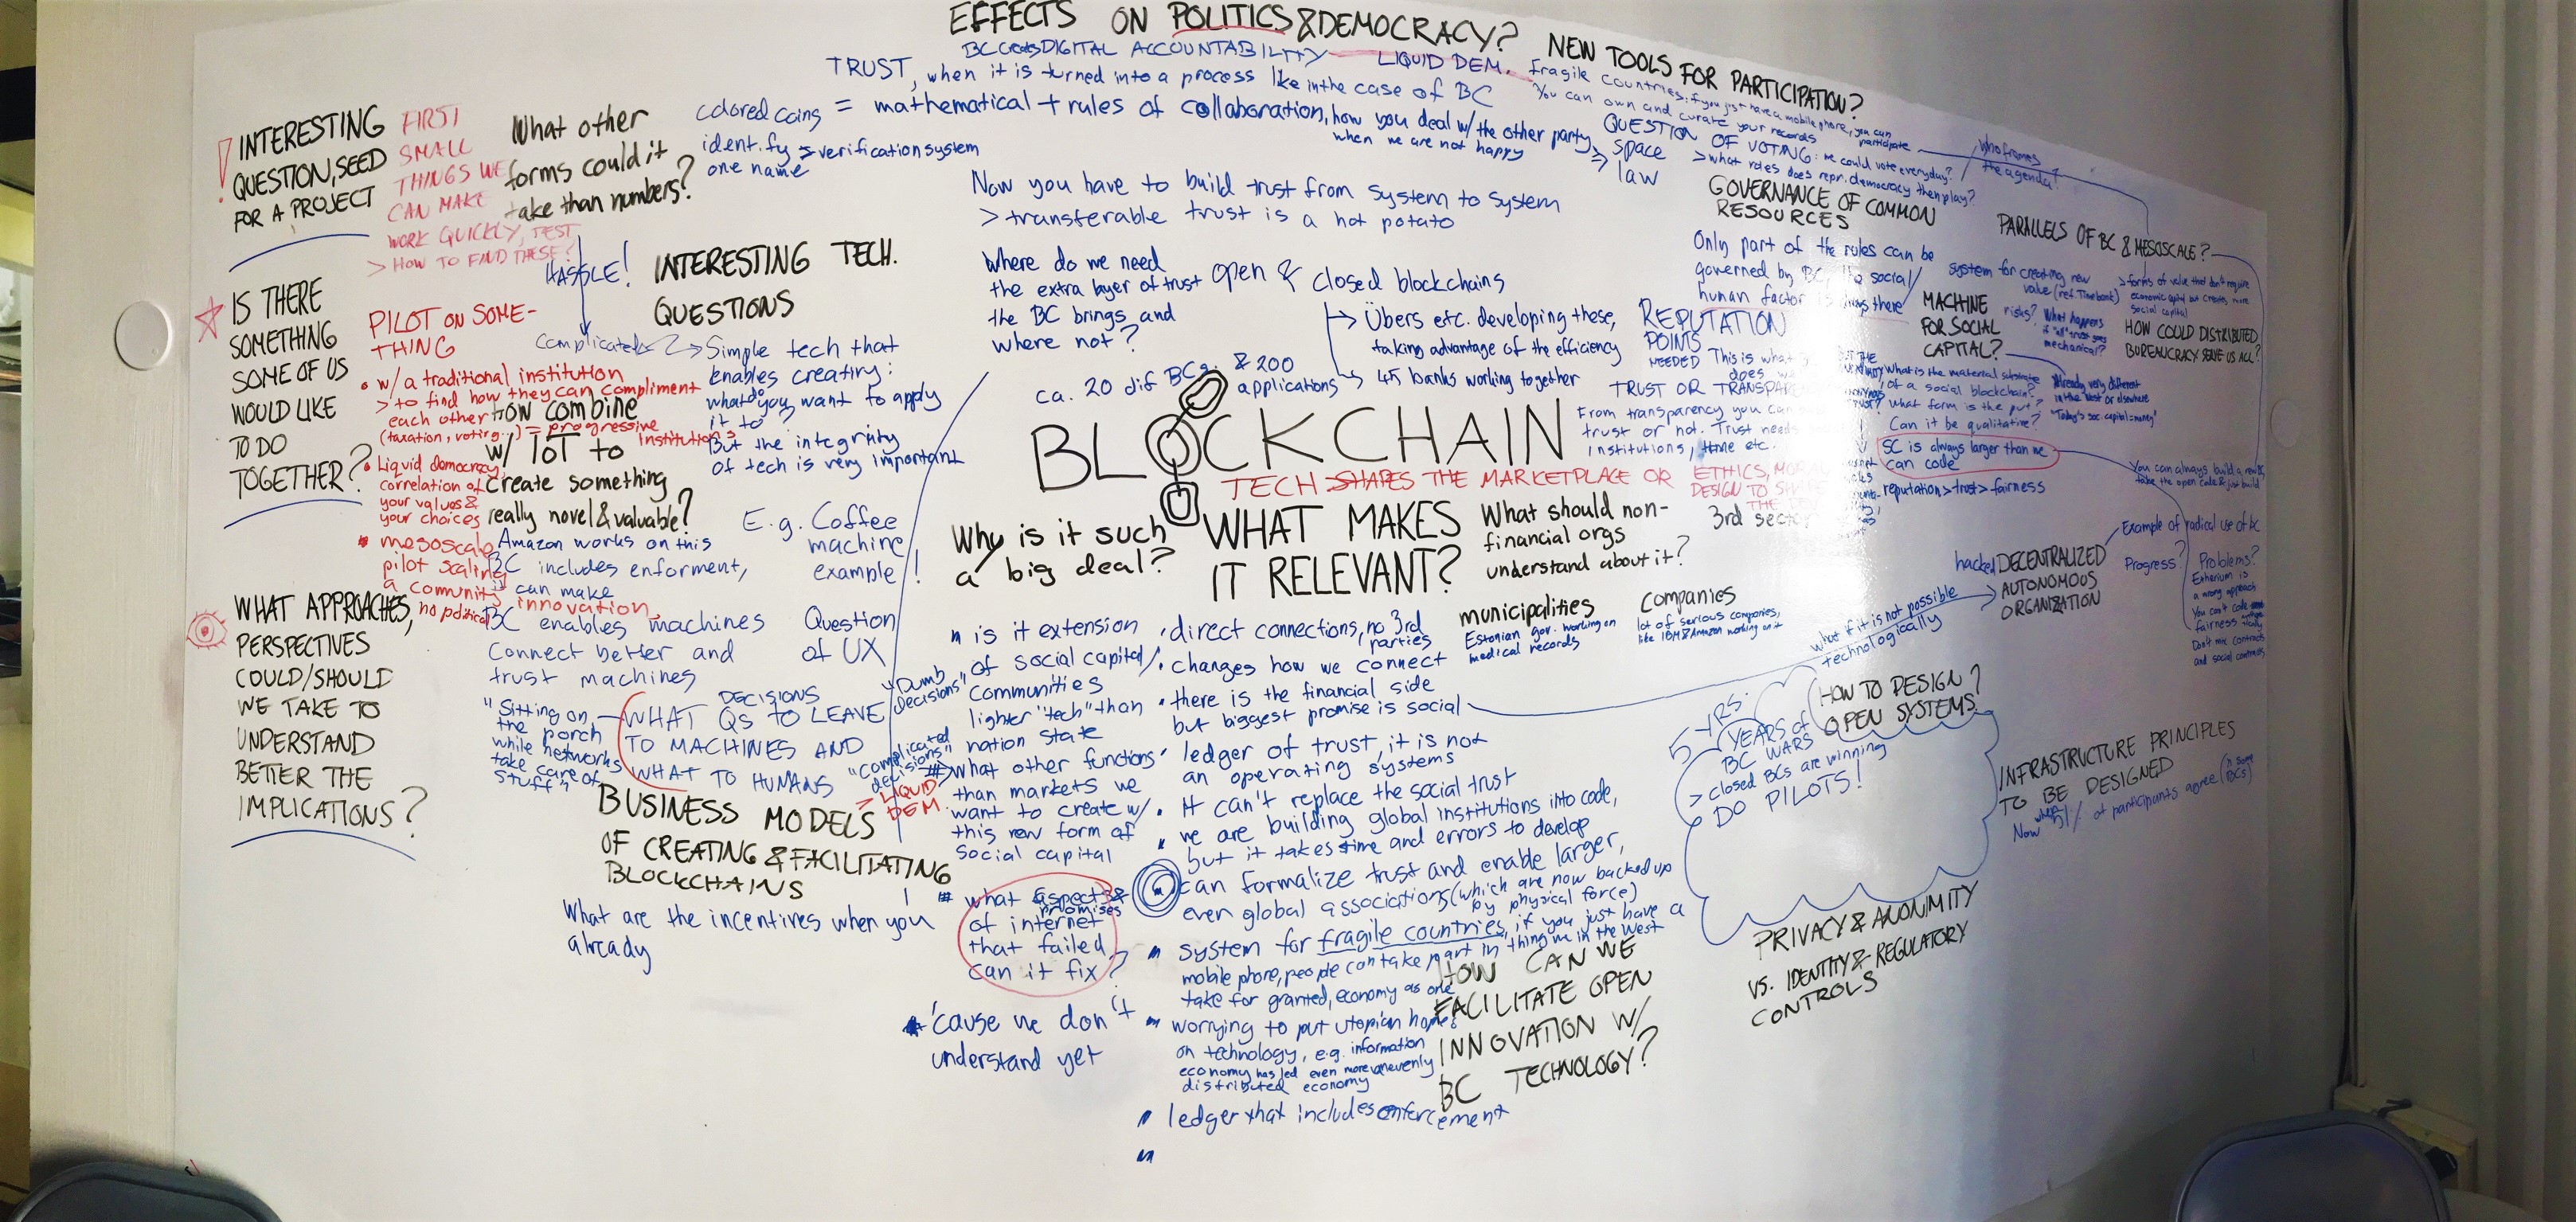 EFFECTS ON POLITICS & DEMOCRACY?
BC creates DIGITAL ACCOUNTABILITY
LIQUID DEM.
TRUST, when it is turned into a process like in the case of BC
= mathematical + rules of collaboration, how you deal w/ the other party
when we are not happy
> space
law
colored coins
identify > verification system
one name
Now you have to build trust from system to system
> transferable trust is a hot potato
NEW TOOLS FOR PARTICIPATION?
Fragile countries: if you just have a mobile phone, you can
participate
You can own and curate your records
QUESTION OF VOTING: we could vote everyday?
> what roles does repr. democracy then play?
who frames
the agenda?
GOVERNANCE OF COMMON
RESOURCES
Only part of the rules can be
governed by BC,
social/
human factor is
there
PARALLELS OF BC & MESOSCALE?
system for creating new
value (ref. Timebank)
> forms of value that don't require
economic capital but creates more
social capital
MACHINE
FOR SOCIAL
CAPITAL?
risks? What happens
if "all" trust goes
mechanical?
HOW COULD DISTRIBUTED
BUREAUCRACY SERVE US ALL?
What is the material substrate
of a social blockchain?
What form is the
Can it be qualitative?
Already very different
in the West or elsewhere
"Today's soc capital = money"
SC is always larger than we
can code
reputation > trust > fairness
You can always build a new BC,
take the open code & just build
! INTERESTING
QUESTION, SEED
FOR A PROJECT
FIRST
SMALL
THINGS WE
CAN MAKE
WORK QUICKLY, TEST
> HOW TO FIND THESE?
What other
forms could it
take than numbers?
HASSLE!
complicated
INTERESTING TECH.
QUESTIONS
Simple tech that
enables creating:
what do you want to apply
it to?
But the integrity
of tech is very important
IS THERE
SOMETHING
SOME OF US
WOULD LIKE
TO DO
TOGETHER?
PILOT ON SOME-
THING
• w/ a traditional institution
> to find how they can compliment
each other
(taxation, voting...) = progressive
institutions
• Liquid democracy
correlation of
your values &
your choices
• mesoscale
pilot scaling
a comunity
no political
innovation
How combine
w/ IoT to
create something
really novel & valuable?
Amazon works on this
BC includes enforment,
it can make
BC enables machines
connect better and
trust machines
E.g. Coffee
machine
example!
Question
of UX
WHAT APPROACHES,
PERSPECTIVES
COULD/SHOULD
WE TAKE TO
UNDERSTAND
BETTER THE
IMPLICATIONS?
"Sitting on
the porch
while networks
take care of
stuff"
DECISIONS
WHAT QS TO LEAVE
TO MACHINES AND
WHAT TO HUMANS
"Dumb
decisions"
"Complicated
decisions"
> LIQUID
DEM.
BUSINESS MODELS
OF CREATING & FACILITATING
BLOCKCHAINS
What are the incentives when you
already
Where do we need
the extra layer of trust
the BC brings and
where not?
open & closed blockchains
Übers etc. developing these,
taking advantage of the efficiency
45 banks working together
ca. 20 dif BCs & 200
applications
BLOCKCHAIN
TECH SHAPES THE MARKETPLACE OR ETHICS,
DESIGN TO
REPUTATION
POINTS
NEEDED
This is what
TRUST OR
From transparency you can
trust or not. Trust needs
institutions, time etc.
Why is it such
a big deal?
WHAT MAKES
IT RELEVANT?
What should non-
financial orgs
understand about it?
3rd sector
municipalities
Estonian gov. working on
medical records
Companies
lot of serious companies,
like IBM & Amazon working on it
is it extension
of social capital/
communities
lighter "tech" than
nation state
# what other functions
than markets we
want to create w/
this new form of
social capital
# what aspects &
promises
of internet
that failed
can it fix?
'cause we don't
understand yet
• direct connections, no 3rd
parties
• changes how we connect
• there is the financial side
but biggest promise is social
ledger of trust, it is not
an operating systems
• It can't replace the social trust
we are building global institutions into code,
but it takes time and errors to develop
can formalize trust and enable larger,
even global associations (which are now backed up
by physical force)
system for fragile countries, if you just have a
mobile phone, people can take part in thing we in the West
take for granted, economy as one
worrying to put utopian hopes
on technology, e.g. information
economy has led even more unevenly
distributed economy
ledger that includes enforcement
HOW CAN WE
FACILITATE OPEN
INNOVATION W/
BC TECHNOLOGY?
what if it is not possible
technologically
hacked DECENTRALIZED
AUTONOMOUS
ORGANIZATION
Example of radical use of BC
Progress?
Problems?
Etherium is
a wrong approach
You can't code
fairness
Don't mix contracts
and social contracts
5 YRS.
YEARS of
BC WARS
> closed BCs are winning
DO PILOTS!
HOW TO DESIGN?
OPEN SYSTEMS
INFRASTRUCTURE PRINCIPLES
TO BE DESIGNED
Now when 51% of participants agree (in some
BCs)
PRIVACY & ANONIMITY
VS. IDENTITY & REGULATORY
CONTROLS